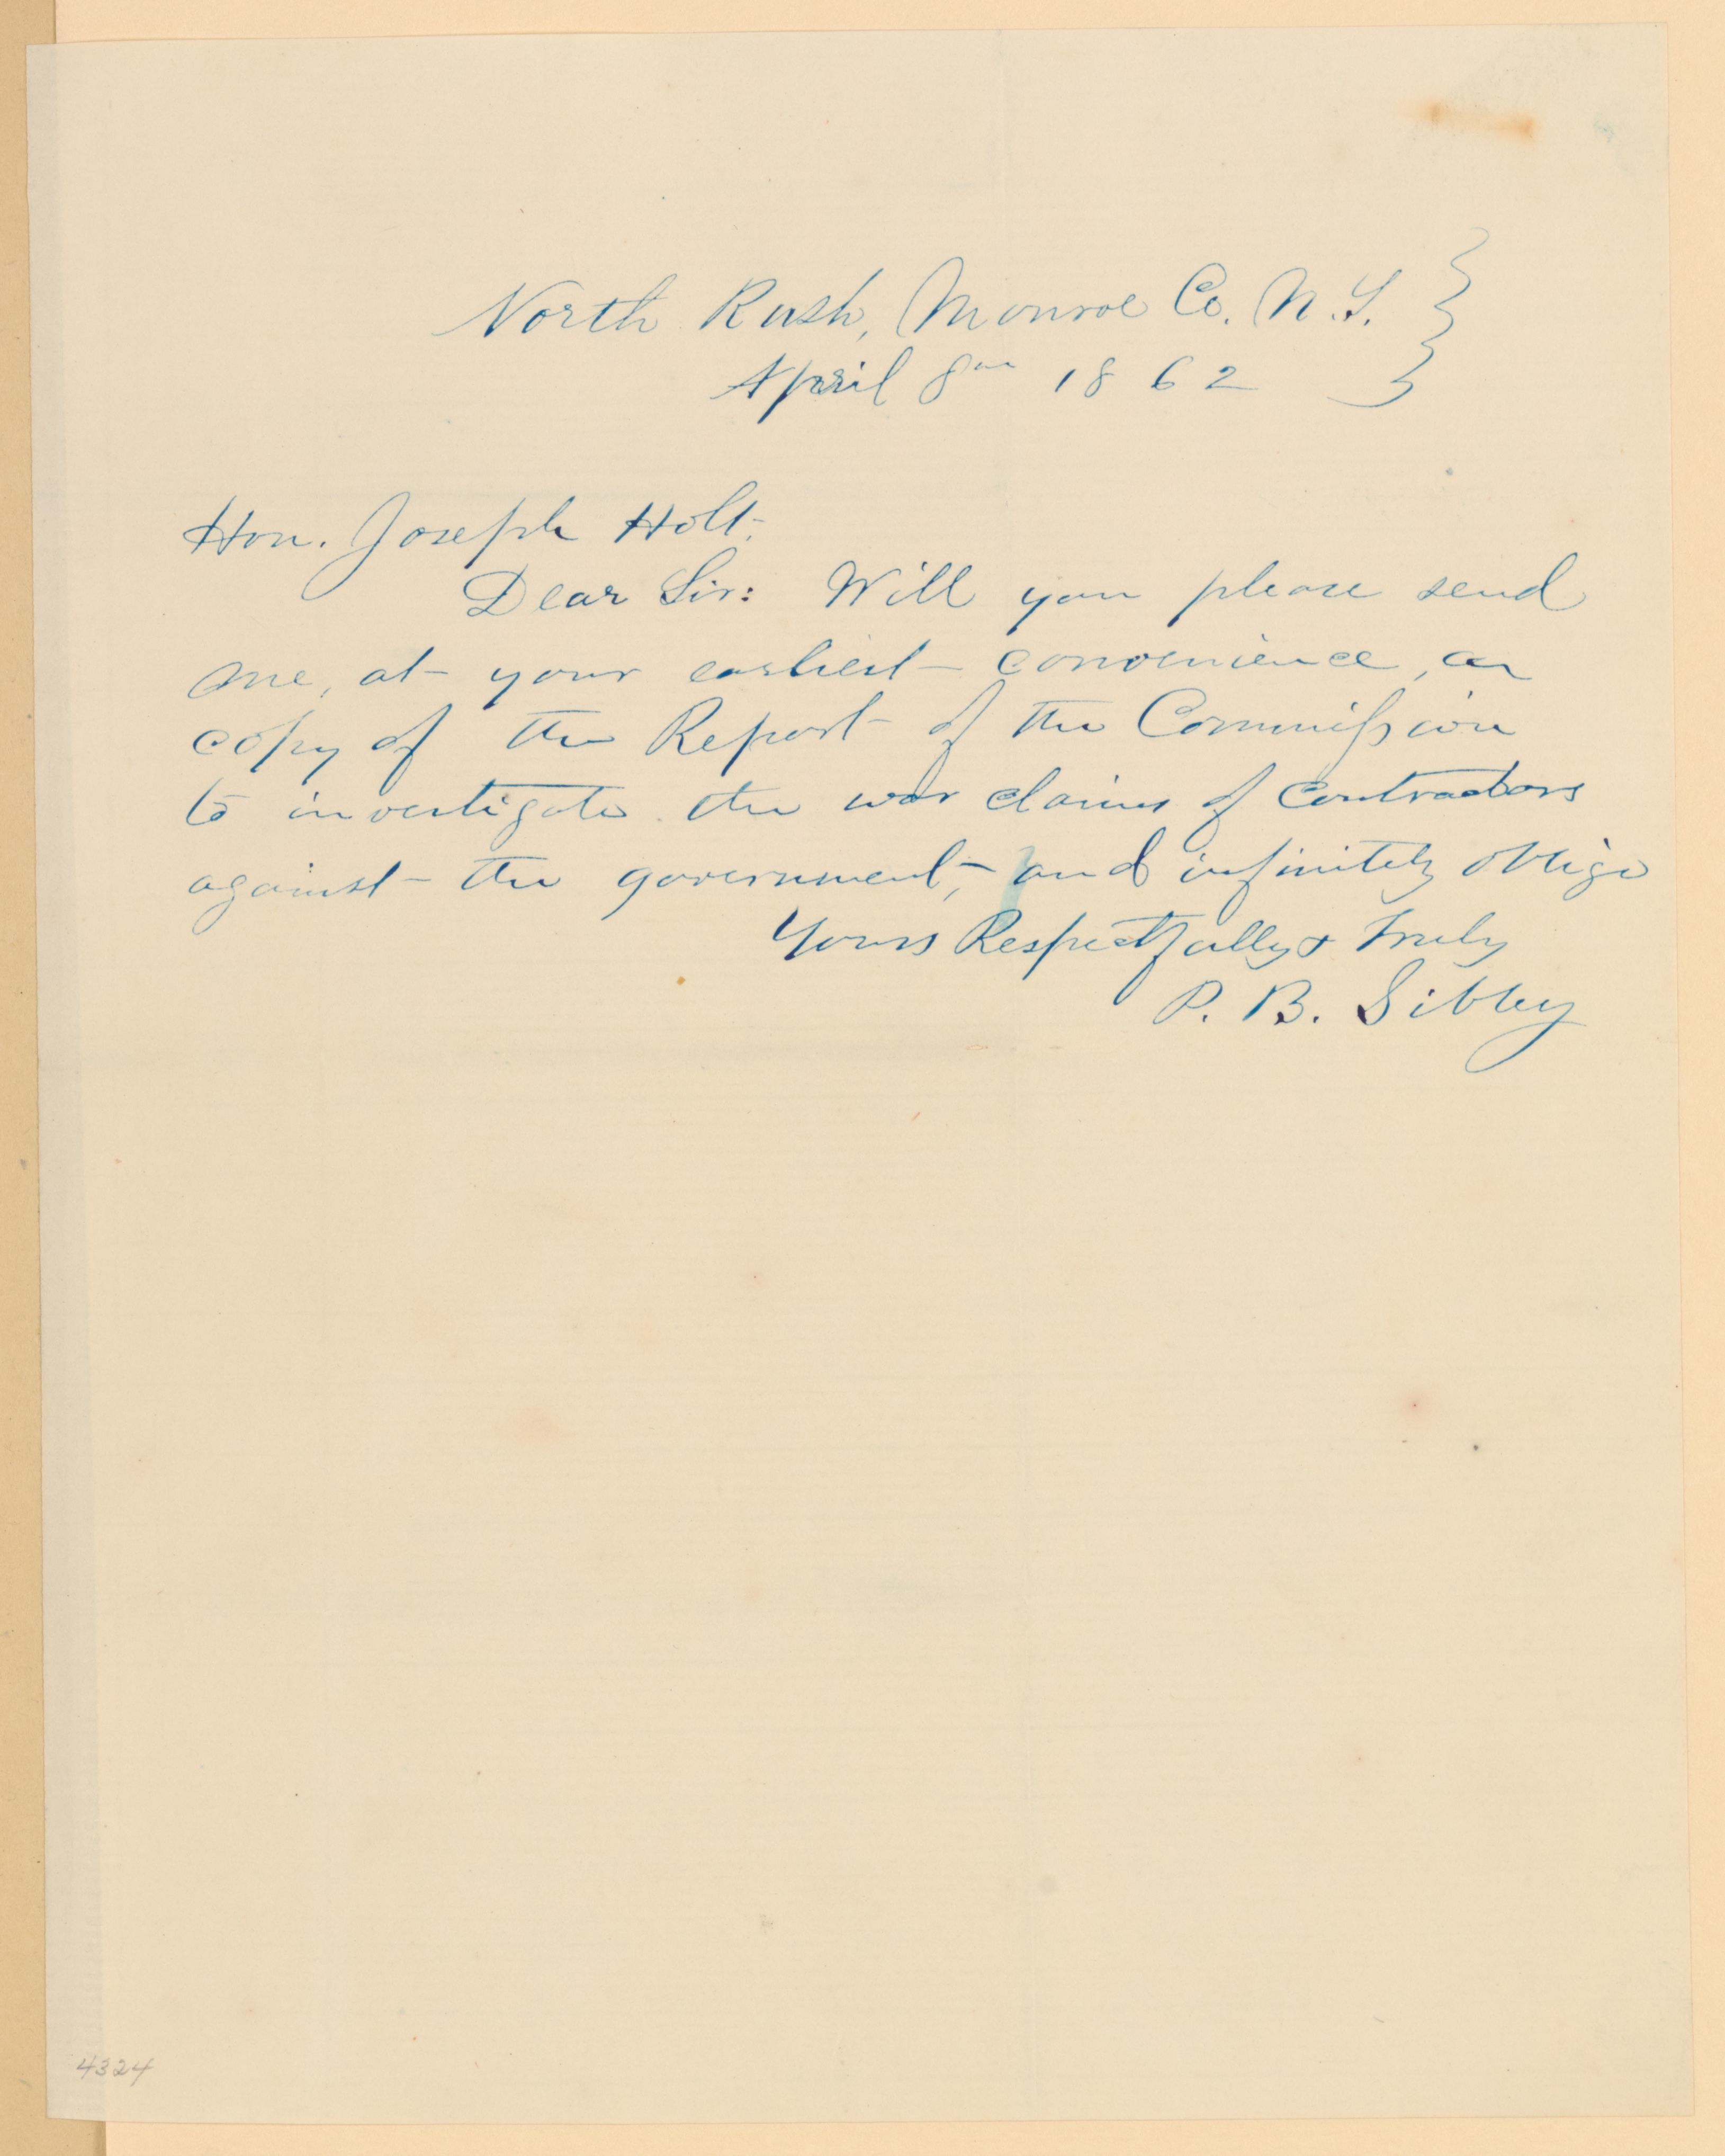 North Rush, Monroe Co. N.Y.
April 8th 1862
Hon. Joseph Holt.
Dear Sir: Will you please send
me, at your earliest convenience, a
copy of the Report of the Commission
to investigate the war claims of Contractors
against the government, and infinitely oblige
Yours Respectfully & truly
P. B. Sibley
4324